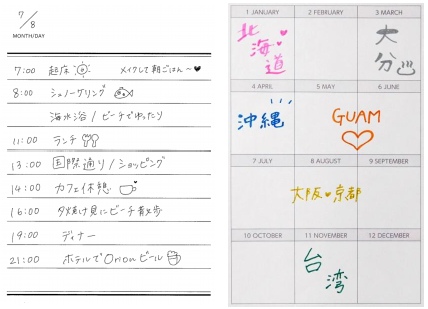 7/8
MONTH/DAY
7:00 起床 メイクして朝ごはん〜
8:00 シュノーケリング
海水浴 / ビーチでゆったり
11:00 ランチ
13:00 国際通り / ショッピング
14:00 カフェ休憩
16:00 夕焼け見にビーチ散歩
19:00 ディナー
21:00 ホテルでOrionビール
1 JANUARY
2 FEBRUARY
3 MARCH
北海道
大分
4 APRIL
5 MAY
6 JUNE
沖縄
GUAM
7 JULY
8 AUGUST
9 SEPTEMBER
大阪♥京都
10 OCTOBER
11 NOVEMBER
12 DECEMBER
台湾